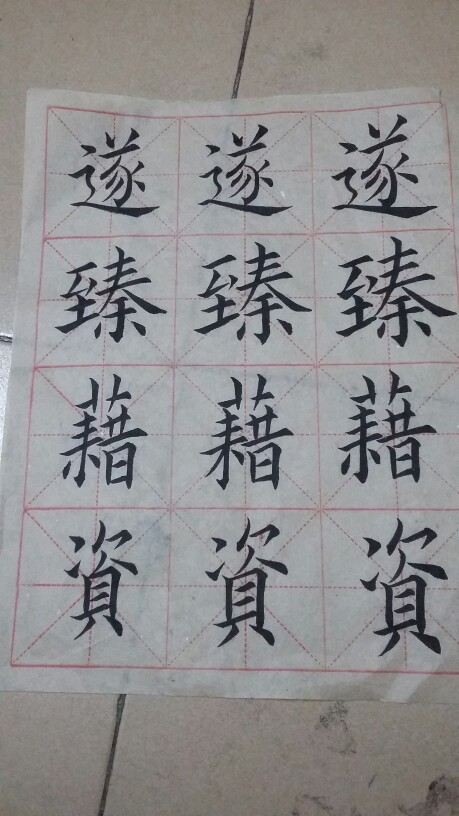 遂遂遂
臻臻臻
藉藉藉
資資資